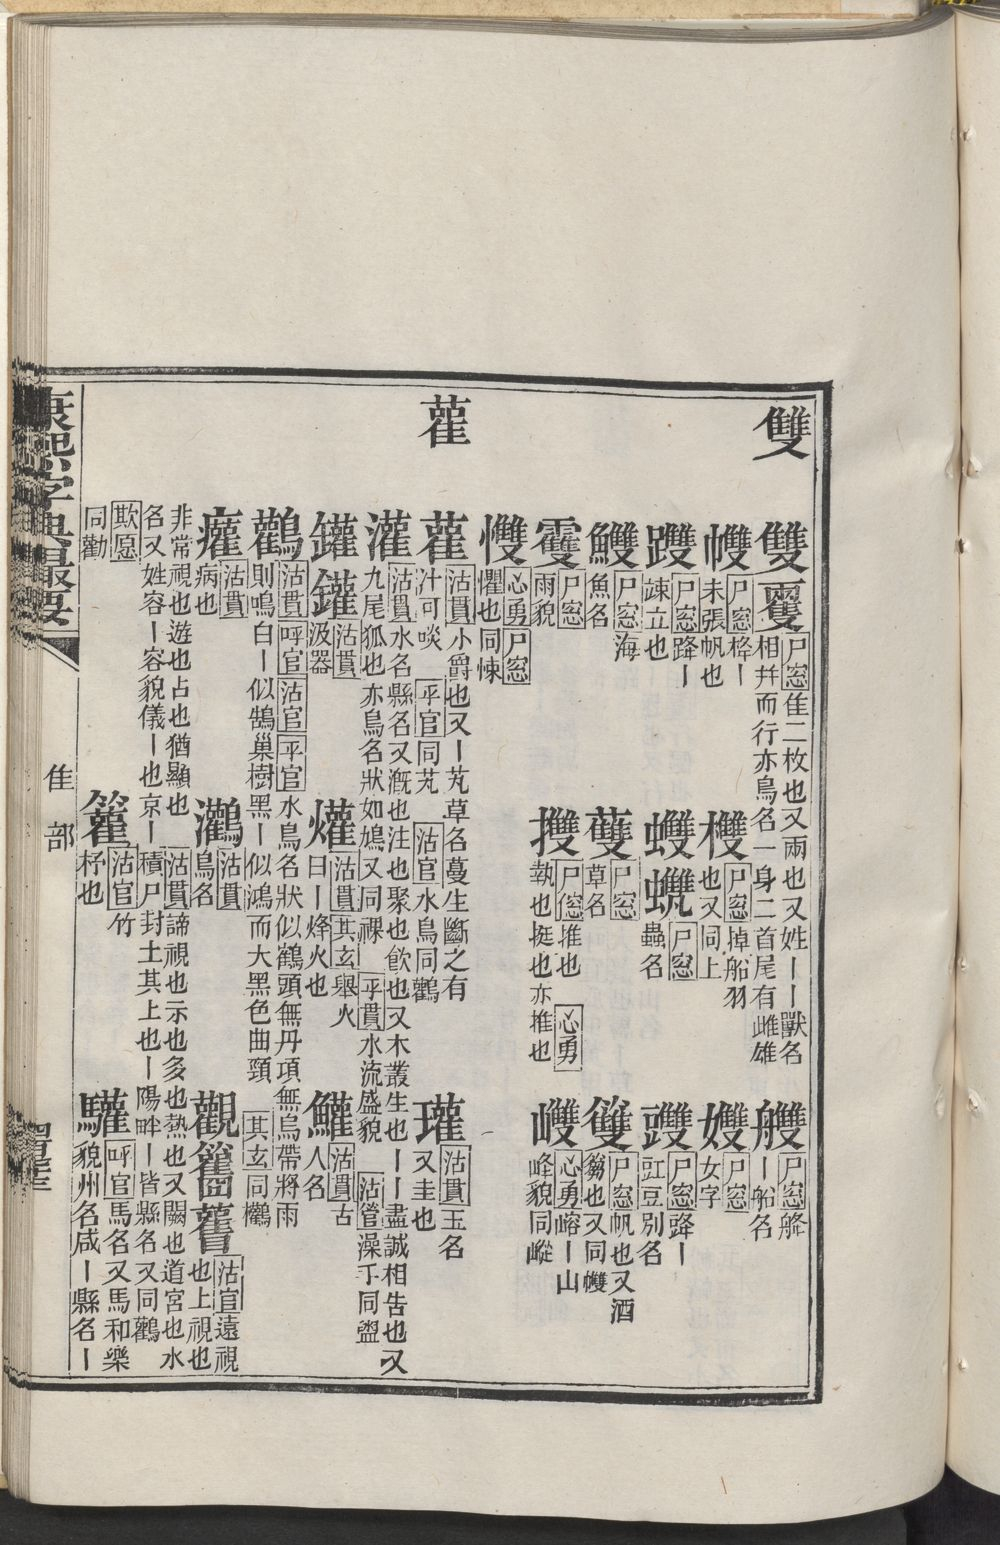 雙
雙㕠 尸窓隹二枚也又兩也又姓丨丨獸名
相幷而行亦鳥名一身二首尾有雌雄
艭 尸窓艂丨船名
㡠 尸窓㭚丨未張帆也
欆 尸窓掉船羽也又同上
孇 尸窓女字
躞 尸窓䟫丨竦立也
䉶 尸窓丨蟲名
豅 尸窓䜶丨豇豆別名
鱟 尸窓海魚名
䕪 尸窓草名
篗 尸窓帆也又酒篘也又同㡠
霻 尸窓雨貌
㩳 尸傯推也 心勇執也挺也亦推也
㠠 心勇嵱丨山峰貌同嵷
愯 心勇尸窓懼也同悚
雚
雚 沽貫小爵也又丨芄草名蔓生斷之有汁可啖 平官同芄 沽官水鳥同鸛
瓘 沽貫玉名又圭也
灌 沽貫水名縣名又漑也注也聚也飮也又木叢生也丨丨盡誠相告也又九尾狐也亦鳥名狀如鳩又同祼 乎貫水流盛貌 沽管澡手同盥
鑵罐 沽貫汲器
爟 沽貫其玄舉火曰丨烽火也
鱹 沽貫古人名
鸛 沽貫呼官沽官平官水鳥名狀似鶴頭無丹項無烏帶將雨則鳴白丨似鵠巢樹黑丨似鴻而大黑色曲頸 其玄同䲾
癯 沽貫病也
鸛 沽貫鳥名
觀 沽官遠視也上視也非常視也遊也占也猶顯也 沽貫諦視也示也多也熱也又闕也道宮也水名又姓容丨容貌儀丨也京丨積尸封土其上也丨陽畔丨皆縣名又同鸛
籗 沽官竹杼也
驩 呼官馬名又馬和樂貌州名咸丨縣名丨
欺愿同勸
康熙字典撮要
隹部